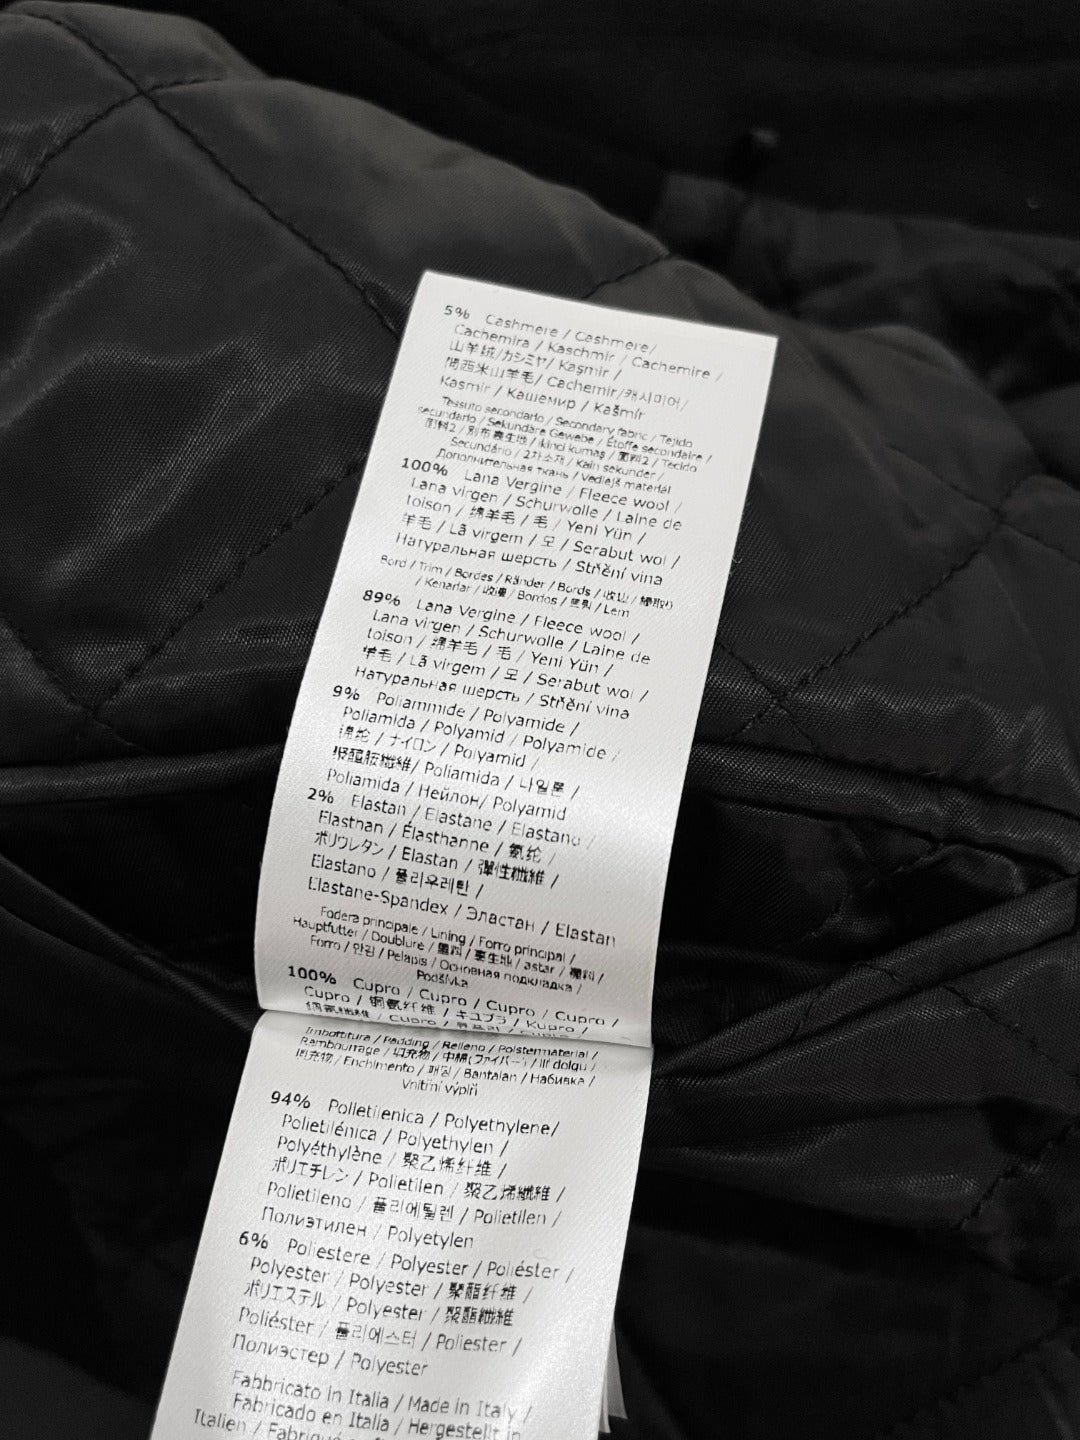 5% Cashmere / Cashmere/
Cachemira / Kaschmir / Cachemire /
山羊绒/カシミヤ/ Kaşmir /
開西米山羊毛/ Cachemir/캐시미어/
Kasmir / Кашемир / Kašmír
Tessuto secondario / Secondary fabric / Tejido
secundario / Sekundäre Gewebe / Étoffe secondaire /
面料2 / 別布裏生地 / ikinci kumaş / 面料2 / Tecido
Secundário / 2차소재 / Kain sekunder /
Дополнительная ткань / Vedlejš materiál
100% Lana Vergine / Fleece wool /
Lana virgen / Schurwolle / Laine de
toison / 绵羊毛 / 毛 / Yeni Yün /
羊毛 / Lã virgem / 모 / Serabut wol /
Натуральная шерсть / Střění vina
Bord / Trim / Bordes / Ränder / Bords / 收边 / 縁取り
/ Kenarlar / 收邊 / Bordos / / Lem
89% Lana Vergine / Fleece wool /
Lana virgen / Schurwolle / Laine de
toison / 绵羊毛 / 毛 / Yeni Yün /
羊毛 / Lã virgem / 모 / Serabut wol /
Натуральная шерсть / Střění vina
9% Poliammide / Polyamide /
Poliamida / Polyamid / Polyamide /
锦纶 / ナイロン / Polyamid /
聚醯胺纖維/ Poliamida / 나일론 /
Poliamida / Нейлон/ Polyamid
2% Elastan / Elastane / Elastano /
Elasthan / Élasthanne / 氨纶 /
ポリウレタン / Elastan / 彈性纖維 /
Elastano / 폴리우레탄 /
Elastane-Spandex / Эластан / Elastan
Fodera principale / Lining / Forro principal /
Hauptfutter / Doublure / 里料 / 裏生地 / astar / 裡料 /
Forro / 안감 / Pelapis / Основная подкладка /
Podšívka
100% Cupro / Cupro / Cupro / Cupro /
Cupro / 铜氨纤维 / キュプラ / Kupro /
銅氨纖維 / Cupro / 큐프라 / Cupro /
Imbottitura / Padding / Relleno / Polstermaterial /
Rambourrage / 填充物 / 中綿(ファイバー) / İlf dolgu /
填充物 / Enchimento / 패딩 / Bantalan / Набивка /
Vnitřní výplň
94% Polietilenica / Polyethylene/
Polietilénica / Polyethylen /
Polyéthylène / 聚乙烯纤维 /
ポリエチレン / Polietilen / 聚乙烯纖維 /
Polietileno / 폴리에틸렌 / Polietilen /
Полиэтилен / Polyetylen
6% Poliestere / Polyester / Poliéster /
Polyester / Polyester / 聚酯纤维 /
ポリエステル / Polyester / 聚酯纖維
Poliéster / 폴리에스터 / Poliester /
Полиэстер / Polyester
Fabbricato in Italia / Made in Italy /
Fabricado en Italia / Hergestellt in
Italien / Fabriqué